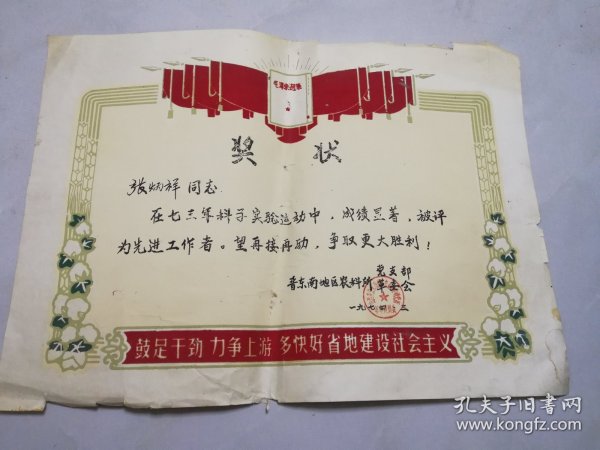 奖 状
张炳祥 同志
在七三年科学实验运动中，成绩显著，被评
为先进工作者。望再接再励，争取更大胜利！
党支部
晋东南地区农科所 革委会
一九七四
鼓足干劲 力争上游 多快好省地建设社会主义
孔夫子旧书网
www.kongfz.com